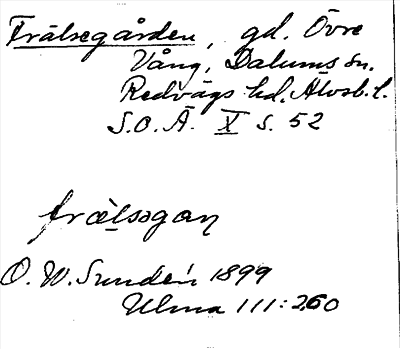 Frälsegården, gd. Övre
Vång, Dalums sn.
Redvägs hd. Älvsb. l.
S.O.Ä. X s. 52
frælsəgan
O. W. Sundén 1899
Ulma 111:260